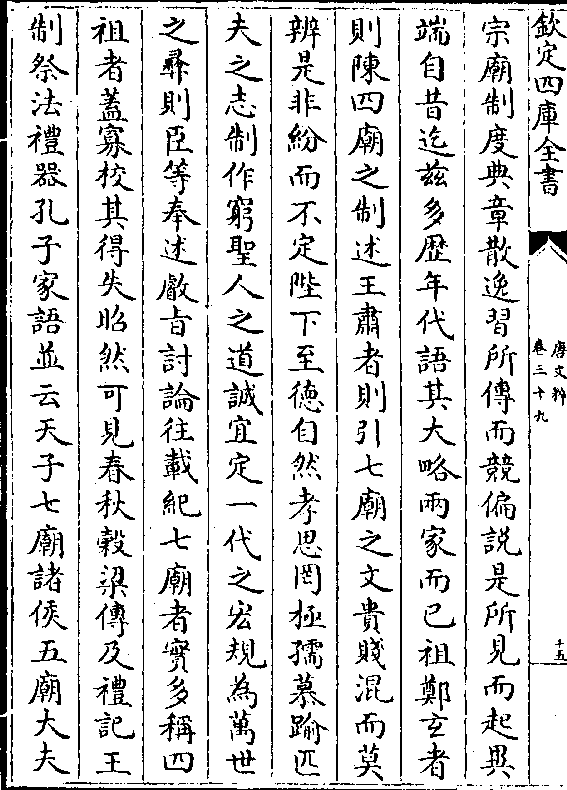 欽定四庫全書
唐文粹
卷三十九
十五
宗廟制度典章散逸習所傳而競偏説是所見而起異
端自昔迄兹多歴年代語其大略兩家而已祖鄭𤣥者
則陳四廟之制述王肅者則引七廟之文貴賤混而莫
辨是非紛而不定陛下至德自然孝思罔極孺慕踰匹
夫之志制作窮聖人之道誠宜定一代之宏規為萬世
之彛則臣等奉述叡旨討論往載紀七廟者實多稱四
祖者蓋寡校其得失昭然可見春秋榖梁傳及禮記王
制祭法禮器孔子家語並云天子七廟諸侯五廟大夫